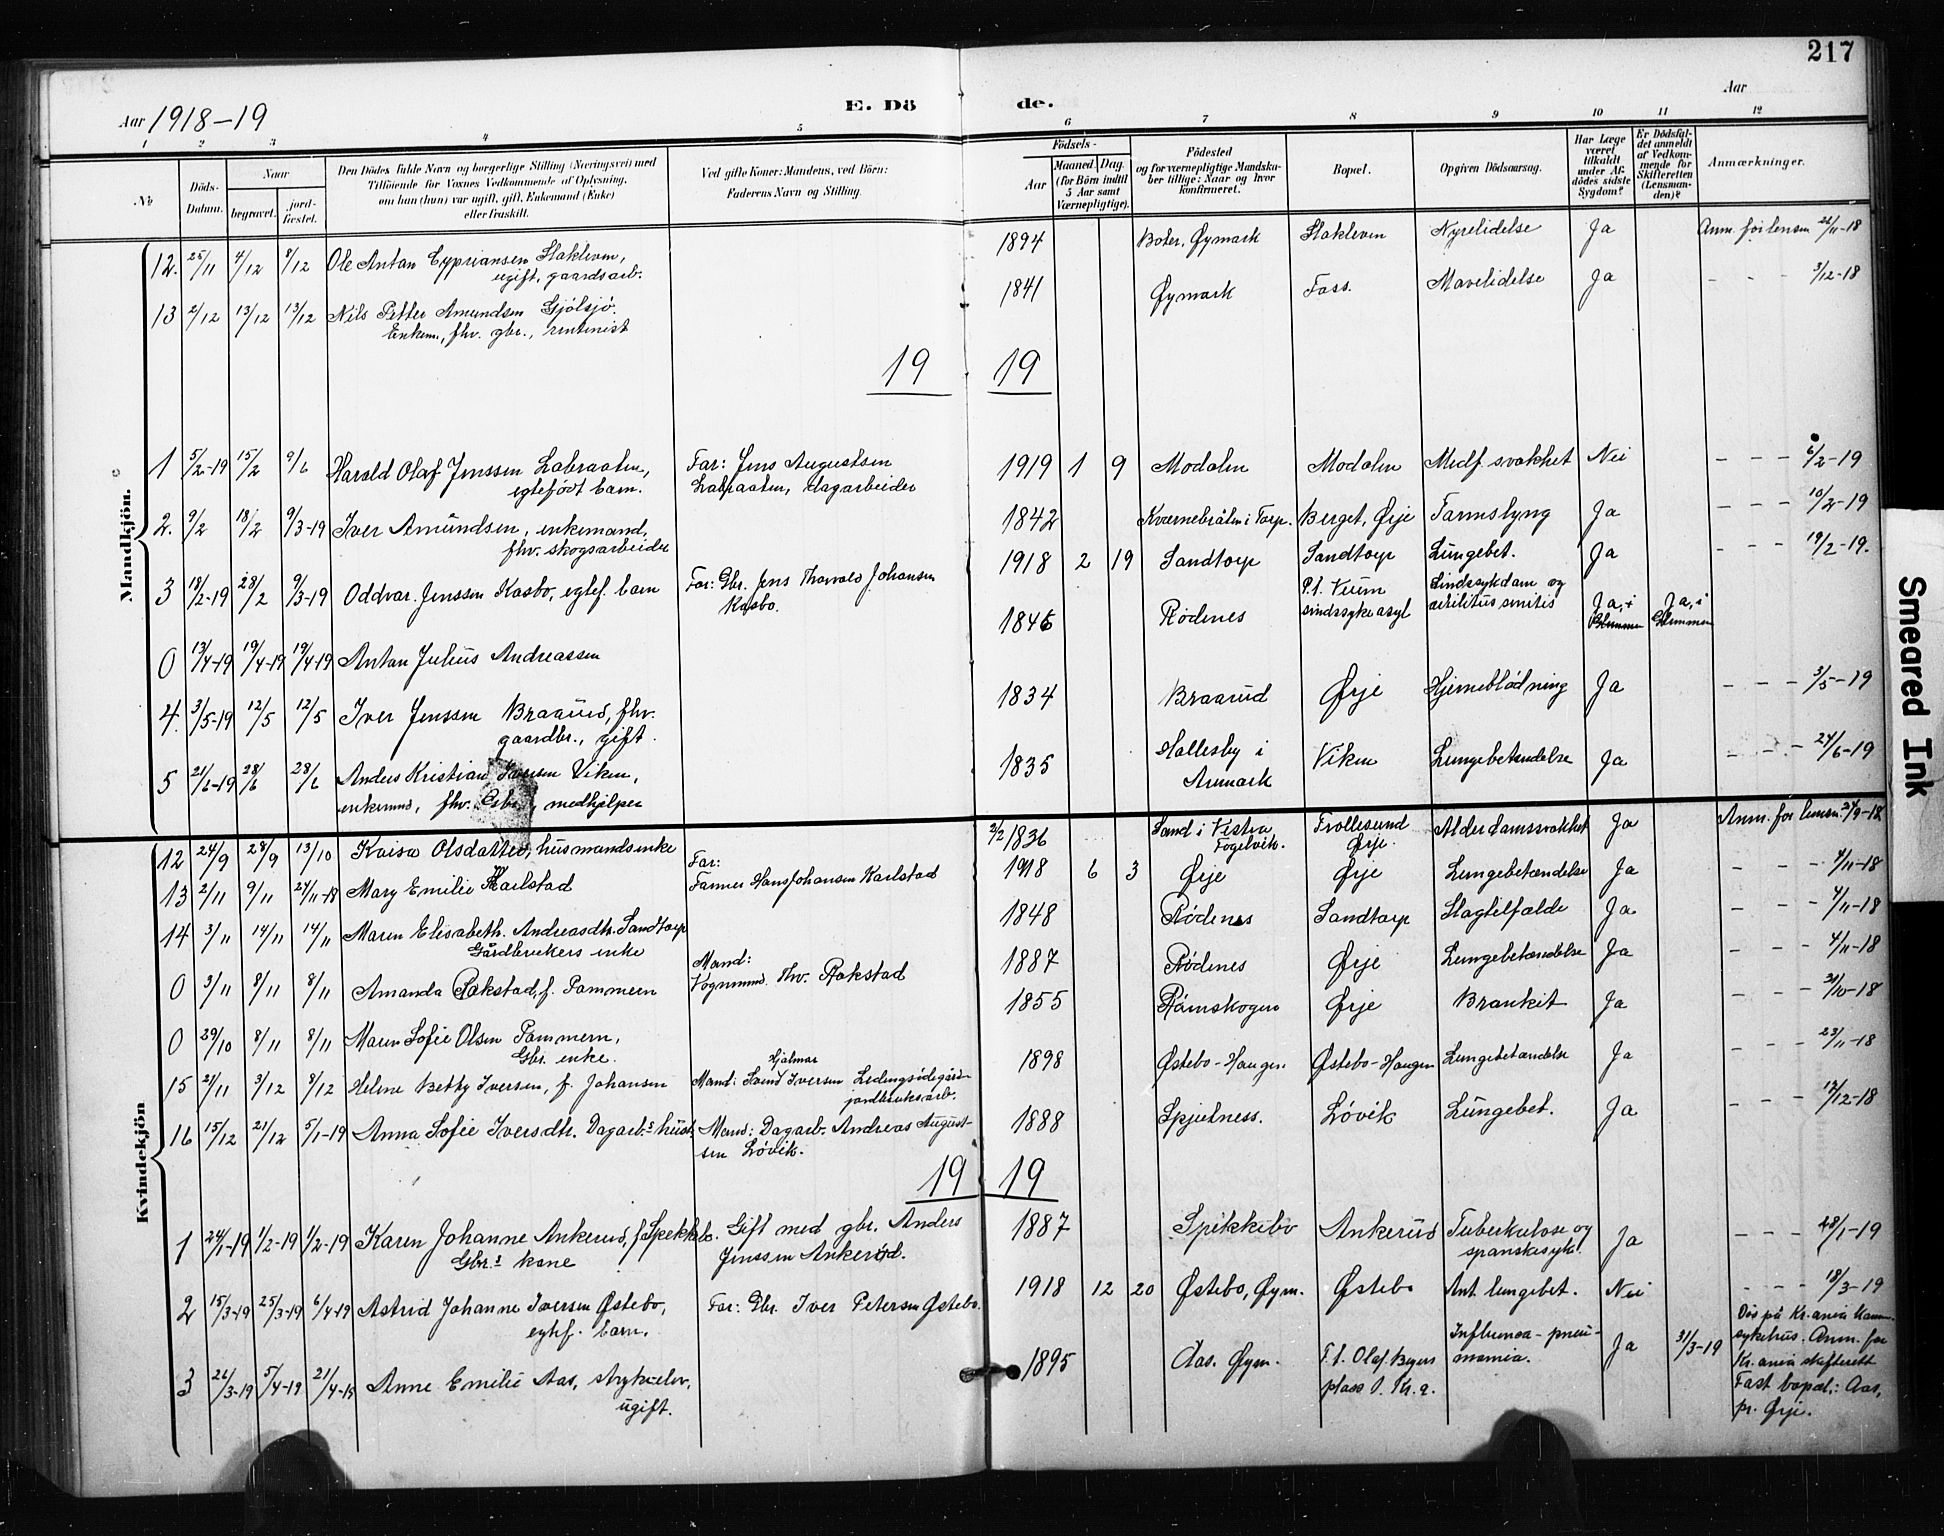 217
Aar 1918-19
E. Döde.
Aar
1 2 3 4 5 6 7 8 9 10 11 12
No
Döds-Datum.
Naar
begravet.
jord-fæstet.
Den Dödes fulde Navn og borgerlige Stilling (Næringsvei) med
Tilföiende for Voxnes Vedkommende af Oplysning,
om han (hun) var ugift, gift, Enkemand (Enke)
eller fraskilt.
Ved gifte Koner: Mandens, ved Börn:
Faderens Navn og Stilling.
Födsels-
Aar
Maaned. Dag.
(for Börn indtil
5 Aar samt
Værnepligtige).
Födested
og for værnepligtige Mandska-
ber tillige: Naar og hvor
konfirmeret.
Bopæl.
Opgiven Dödsaarsag.
Har Læge
været
tilkaldt
under Af-
dödes sidste
Sygdom?
Er Dödsfal-
det anmeldt
af Vedkom-
mende for
Skifteretten
(Lensman-
den)?
Anmærkninger.
Mandkjön.
12. 25/11 4/12 8/12 Ole Anton Cypriansen Slakleven, 1894 Boter, Øymark Slakleven Nyrelidelse Ja Anm. for lensm 22/11-18
ugift, gaardsarb.
13 2/12 13/12 13/12 Nils Petter Amundsen Gjølsjø. 1841 Øymark Foss. Mavelidelse Ja - - - 3/12-18
Enkem., fhv. gbr., rentenist
19 19
1 5/2-19 15/2 9/6 Harald Olaf Jenssen Labraaten, Far: Jens Augustsen 1919 1 9 Modalen Modalen Medf. svakhet Nei - - - 6/2-19
egtefödt barn. Labraaten, dagarbeider
2. 9/2 18/2 9/3-19 Iver Amundsen, enkemand, 1842 Kværnebråten i Torp. Berget, Ørje Tarmslyng Ja - - - 10/2-19
fhv. skogsarbeider
3 18/2-19 28/2 9/3-19 Oddvar Jenssen Kasbo, egtef. barn Far: Gbr. Jens Thorvald Johansen 1918 2 19 Sandtorp Sandtorp Lungebet. Ja - - - 19/2-19.
Kasbo.
0 13/4-19 19/4-19 19/4-19 Anton Julius Andreassen 1846 Rødenes P.t. Veum sindssykeasyl Sindssykdom og Ja, i Glemmen Ja, i Glemmen
4. 3/5-19 12/5 12/5 Iver Jenssen Braarud, fhv. 1834 Braarud Ørje Hjerneblødning Ja - - - 3/5-19
gaardbr., gift.
5 21/6-19 28/6 28/6 Anders Kristian Iversen Viken, 1835 Hallesby i Aremark Viken Lungebetændelse Ja - - - 24/6-19
enkemnd, fhv. medhjelper
Kvindekjön
12 24/9 28/9 13/10 Kaisa Olsdatter, husmandsenke 2/2 1836 Sand i Vestra Fogelvik. Trollesund Ørje. Alderdomssvakhet Ja Anm. for lensm. 24/9-18
13 2/11 9/11 24/11-18 Mary Emilie Karlstad Far: 1918 6 3 Ørje Ørje Lungebetændelse Ja - - - 4/11-18
Tanner Hans Johansen Karlstad
14 3/11 14/11 14/11 Maren Elisabeth Andreasdtr. Sandtorp 1848 Rødenes Sandtorp Slagtilfælde Ja - - - 4/11-18
Gårdbrukers enke
0 3/11 8/11 8/11 Amanda Rakstad, f. Pommern Mand: 1887 Rødenes Ørje Lungebetændelse Ja - - - 4/11-18
Vognmnd. Thv. Rakstad
0 29/10 8/11 8/11 Maren Sofie Olsen Pommern, 1855 Rømskogen Ørje Bronkit Ja - - - 31/10-18
Gbr. enke.
15 21/11 3/12 8/12 Helene Betty Iversen, f. Johansen Mand: Svend Hjalmar Iversen Ledingsödegård 1898 Østebo-Haugen Østebo-Haugen Lungebetændelse Ja - - - 23/11-18
jordbruksarb.
16 15/12 21/12 5/1-19 Anna Sofie Iversdtr. Dagarb.s hust. Mand: Dagarb. Andreas August- 1888 Spjelness. Løvik Lungebet. Ja - - - 17/12-18
sen Løvik.
19 19
1 24/1-19 1/2-19 1/2-19 Karen Johanne Ankerud, f. Spekkebo. Gift med gbr. Anders 1887 Spikkibo Ankerud Tuberkulose og Ja - - - 28/1-19
Gbr.s kone Jenssen Ankerød. spanskesyk.
2 15/3-19 25/3-19 6/4-19 Astrid Johanne Iversen Østebo, Far: Gbr. Iver Petersen Østebo. 1918 12 20 Østebo, Øym. Østebo Ant. lungebet. Nei - - - 18/3-19
egtef. barn.
3 26/3-19 5/4-19 21/4-19 Anne Emilie Aas, strykeelev, 1895 Aas. Øym. F.t. Olaf Ryes plass 1. Kr.a. Influensa-pneu-monia. Ja 31/3-19 Död på Kr.ania komm. sykehus. Anm. for Kr.ania skifterett Fast bopæl: Aas, pr. Ørje.
ugift.
Smeared Ink